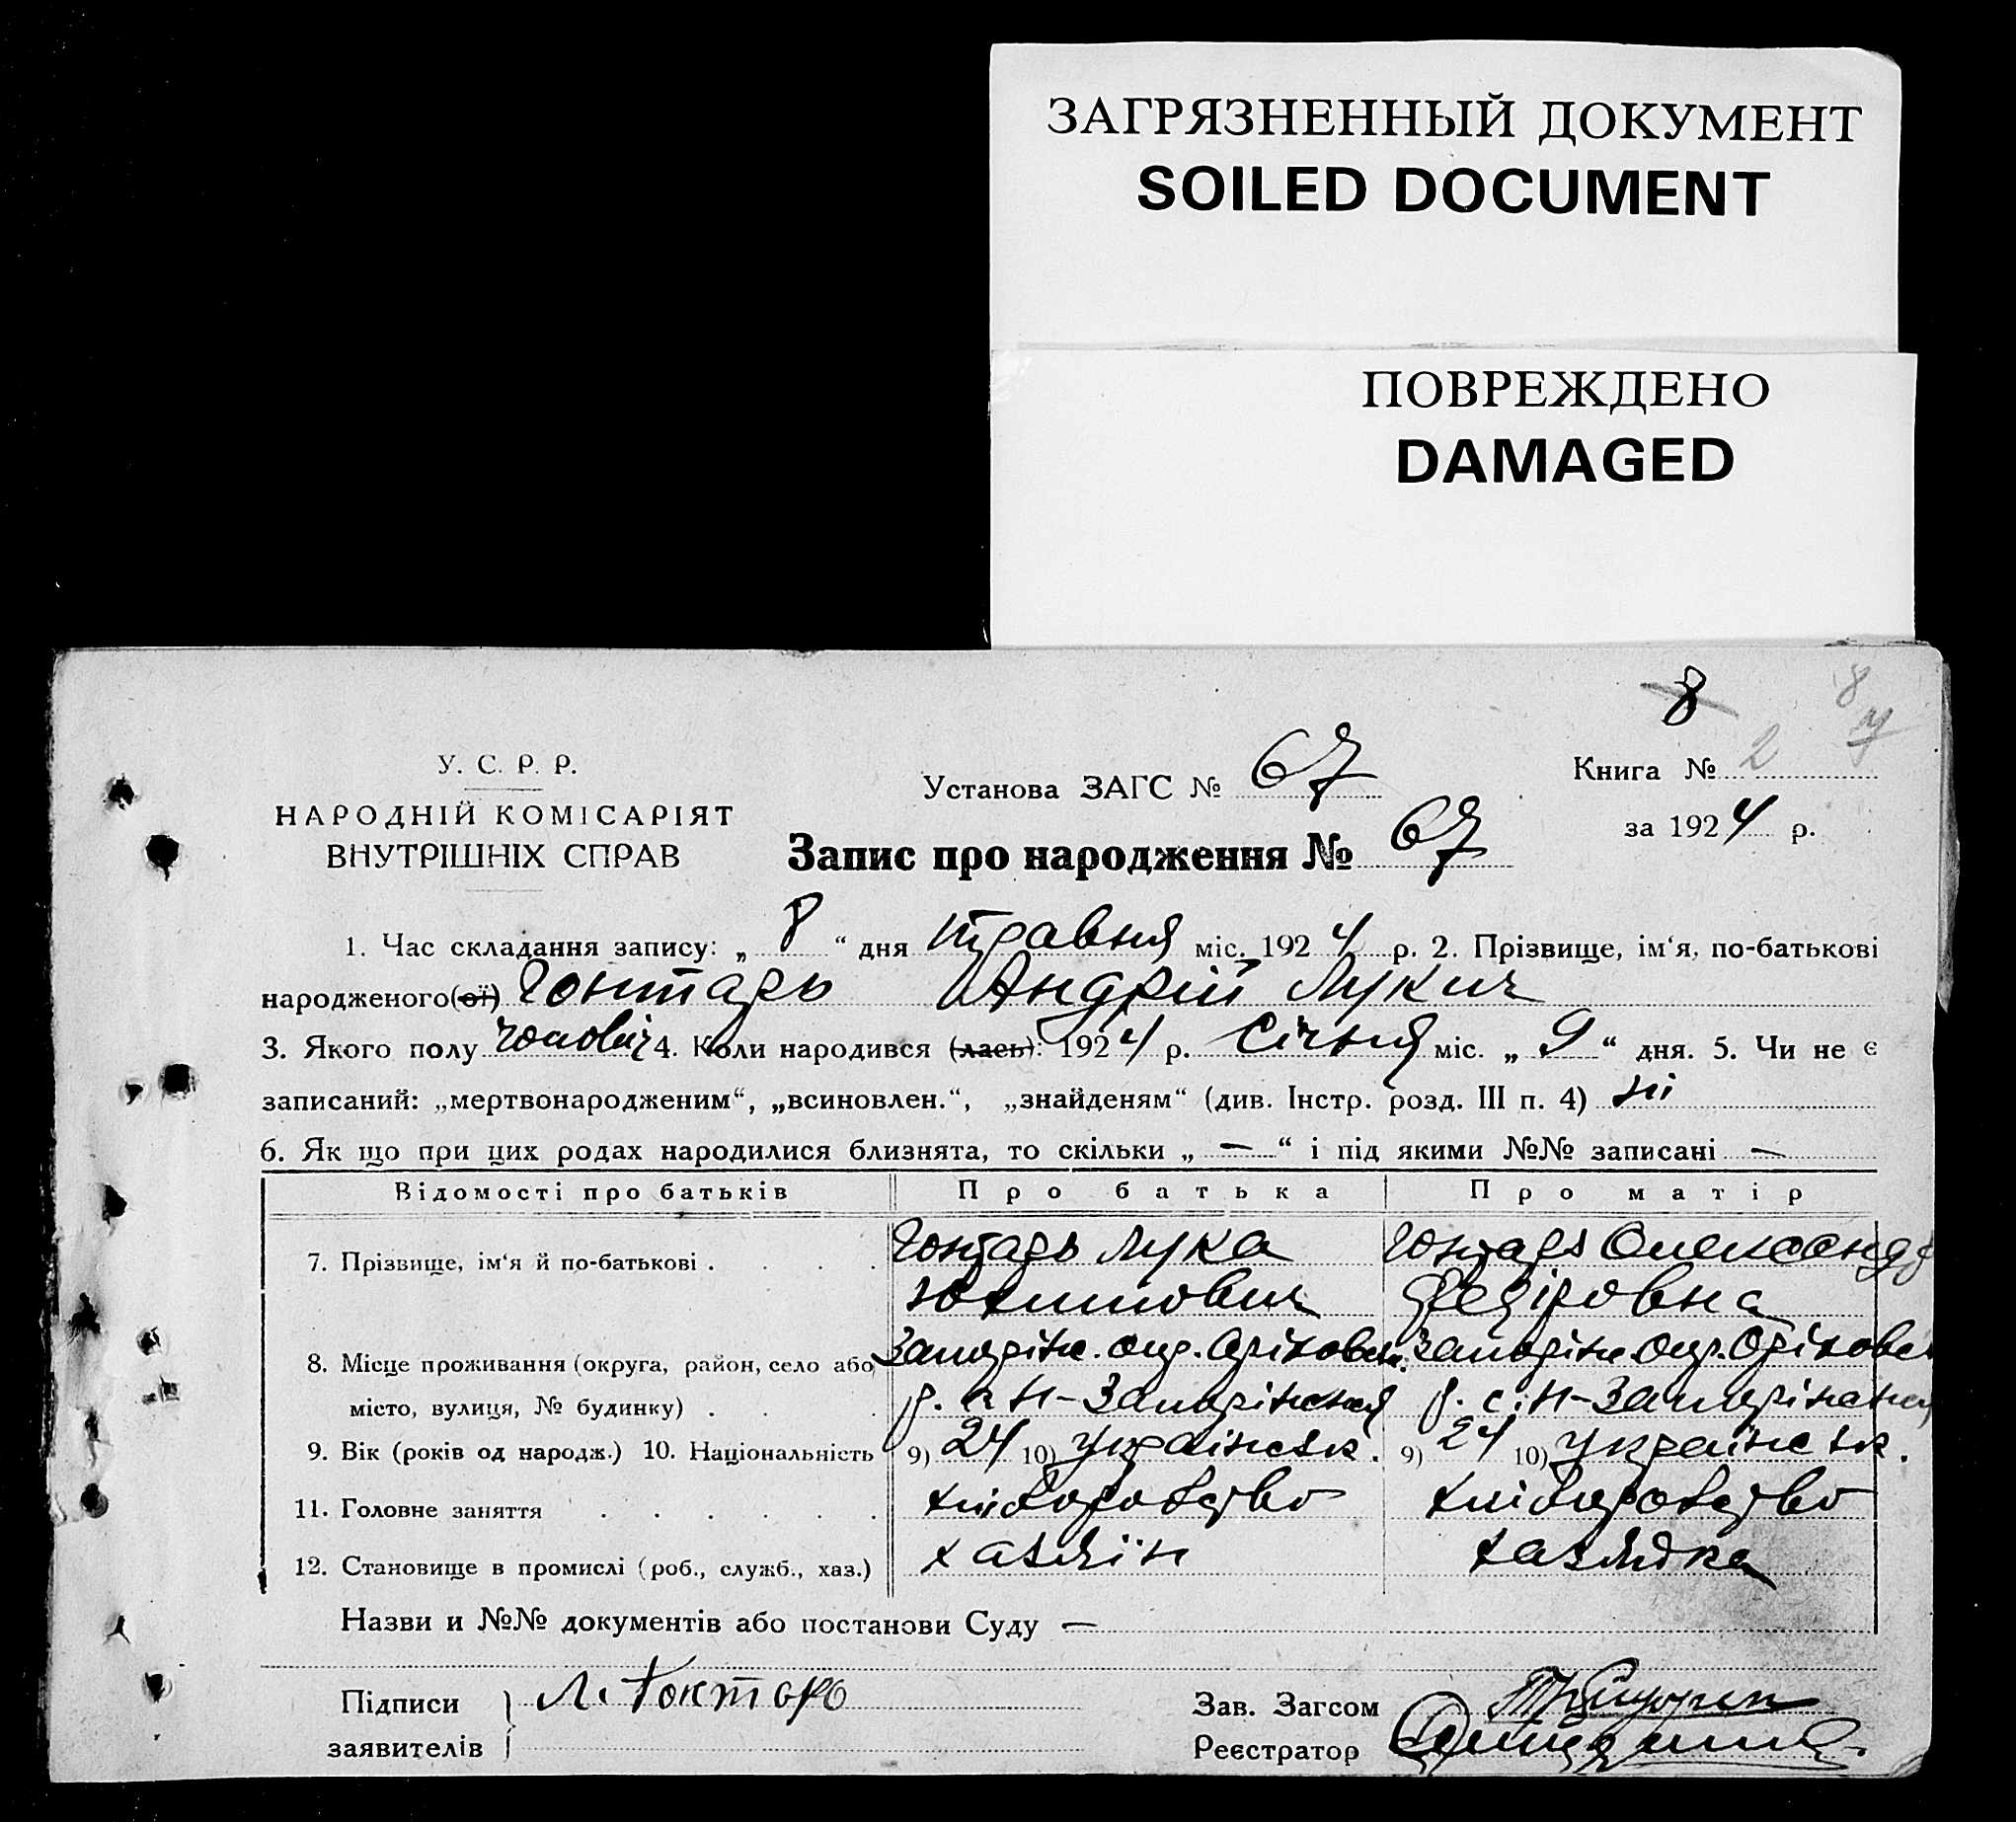 ЗАГРЯЗНЕННЫЙ ДОКУМЕНТ
SOILED DOCUMENT
ПОВРЕЖДЕНО
DAMAGED
8
8
7
У. С. Р. Р.
НАРОДНІЙ КОМІСАРІЯТ
ВНУТРІШНІХ СПРАВ
Установа ЗАГС № 67
Книга № 2
за 1924 р.
Запис про народження № 67
1. Час складання запису: „ 8 “ дня травня міс. 1924 р. 2. Прізвище, ім‘я, по-батькові
народженого(ої) Гонтарь Андрій Лукич
3. Якого полу чоловіч 4. Коли народився (лась): 1924 р. Січня міс. „ 9 “ дня. 5. Чи не є
записаний: „мертвонародженим“, „всиновлен.“, „знайденям“ (див. Інстр. розд. III п. 4) ні
6. Як що при цих родах народилися близнята, то скільки „ — “ і під якими №№ записані —
Відомості про батьків Про батька Про матір
7. Прізвище, ім‘я й по-батькові . . . . Гонтарь Лука Гонтарь Олександр
Юхимович Федіровна
8. Місце проживання (округа, район, село або Запоріж. окр. Оріховськ. Запоріж. окр. Оріховськ
місто, вулиця, № будинку) . . . р. с. Н-Запоріжжя р. с. Н-Запоріжжя
9. Вік (років од народж.) 10. Національність 9) 24 10) Українськ. 9) 24 10) Українськ.
11. Головне заняття . . . . . . хліборобство хліборобство
12. Становище в промислі (роб., служб., хаз.) хазяїн хазяйка
Назви и №№ документів або постанови Суду —
Підписи Л. Гонтарь Зав. Загсом
заявителів Реєстратор